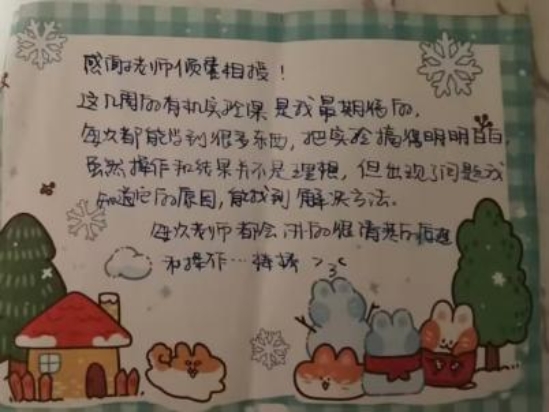 感谢老师倾囊相授！
这几周的有机实验课是我最期待的,
每次都能学到很多东西,把实验搞得明明白白
虽然操作和结果并不是理想,但出现了问题我
知道它的原因,能找到解决方法。
每次老师都会讲的很清楚的原理
和操作…